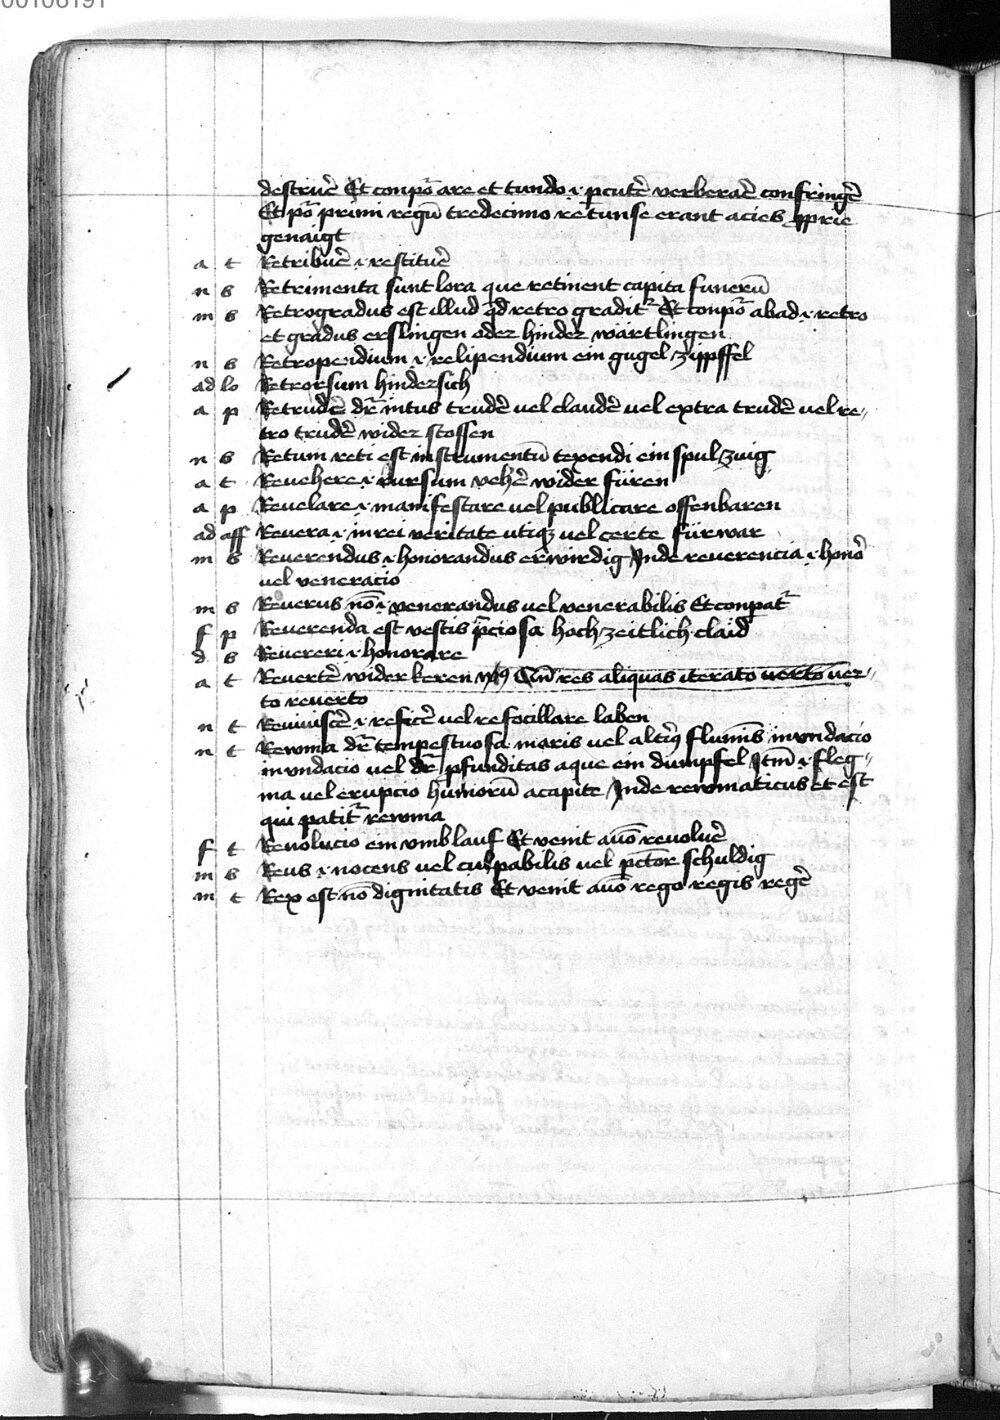 00106191
destruē Et conpōr are et tundo .i. pcutē verberaē confringē
Et pō primi regū tredecimo retunse erant acies pprie
genaigt
a t Retribuē .i. restituē
n s Retrimenta sunt lora que retinent capita funerū
m s Retrogradus est illud qd retro gradit᷑ Et conpō᷑ ab ad .i. retro
et gradus erslingen oder hinder wärtlingen
n s Retropendium .i. relipendium ein gugel zypffel
ad lo Retrorsum hindersich
a p Retrudē dr̄ intus trudē uel claudē uel extra trudē uel re-
tro trudē wider stossen
n s Retum reti est instrumentū texendi ein spulzuig
a t Reuehere .i. rursum vehē wider füren
a p Reuelare .i. manifestare uel publicare offenbaren
ad aff Reuera .i. in rei veritate utiqꝫ uel certe fürwar
m s Reuerendus .i. honorandus erwirdig Inde reuerencia .i. honō
uel veneracio
m s Reuerus nō .i. venerandus uel venerabilis Et conpat᷑
f p Reuerenda est vestis p̄ciosa hochzeitlich claid
d s Reuereri .i. honorare
a t Reuertē wider keren Qn̄ res aliquas iterato uerto uer-
to reuerto
n t Reuiuiscē .i. reficē uel refocillare laben
n t Rewma dr̄ tempestuosa maris uel alteriꝰ flumīs inundacio
inundacio uel dr̄ pfunditas aque ein dumpfel Itm̄ .i. fleg-
ma uel erupcio humorū a capite Inde rewmaticus et est
qui patit᷑ rewma
f t Reuolucio ein vmblauf Et venit a uō reuoluē
m s Reus .i. nocens uel culpabilis uel pctor schuldig
m t Rex est nō dignitatis Et venit a uō rego regis regē